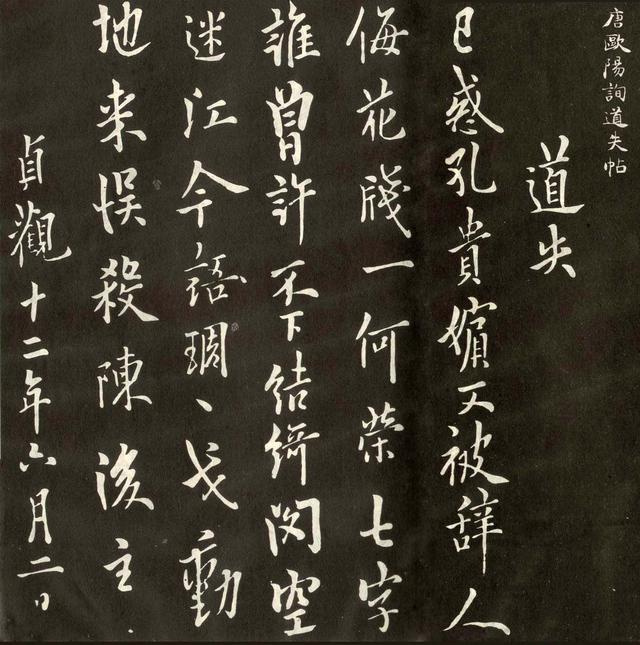 唐歐陽詢道失帖
道失
已惑孔貴嬪又被辞人
侮花牋一何榮七字
誰曽許不下結綺閣空
迷江令語琱戈動
地来悮殺陳後主
貞觀十二年六月二日